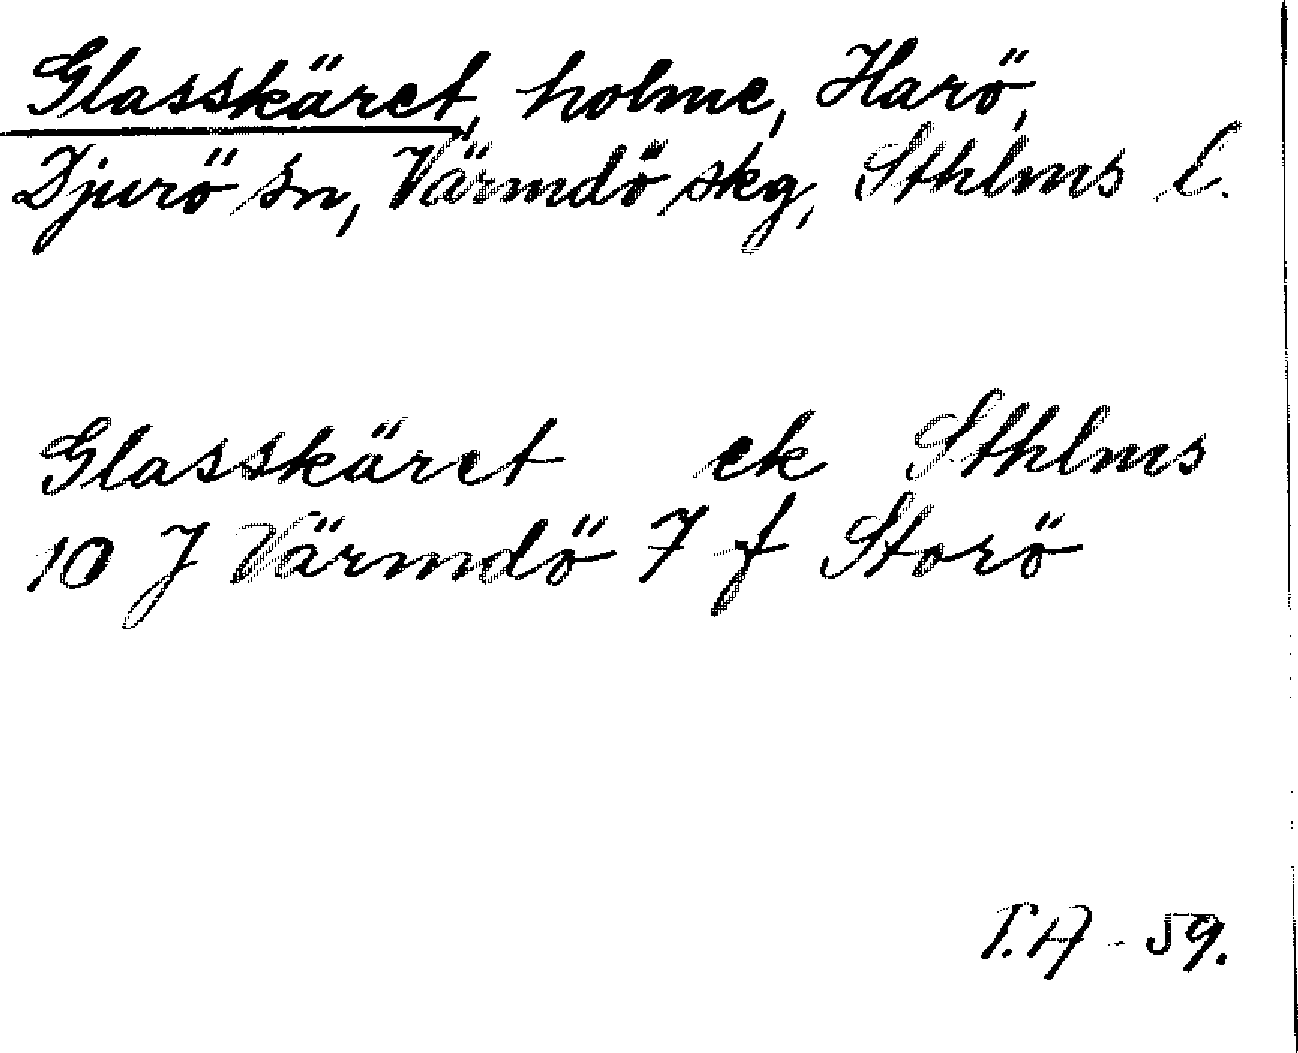 Glasskäret, holme, Harö,
Djurö sn, Värmdö skg, Sthlms l.
Glasskäret ek Sthlms
10 J Värmdö 7 f Storö
T.A - 59.